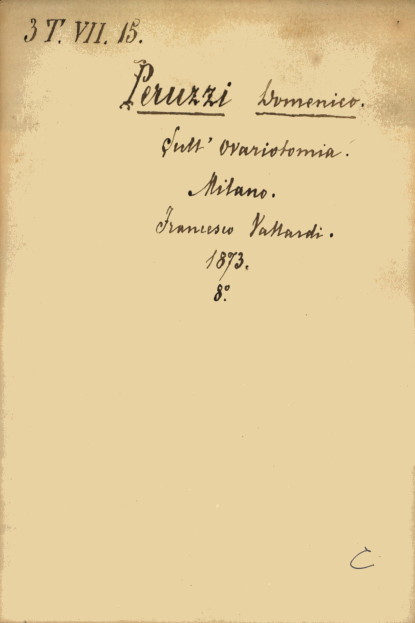 3 T. VII. 15.
Peruzzi Domenico.
Sull' Ovariotomia.
Milano.
Francesco Vallardi.
1873.
8º.
C